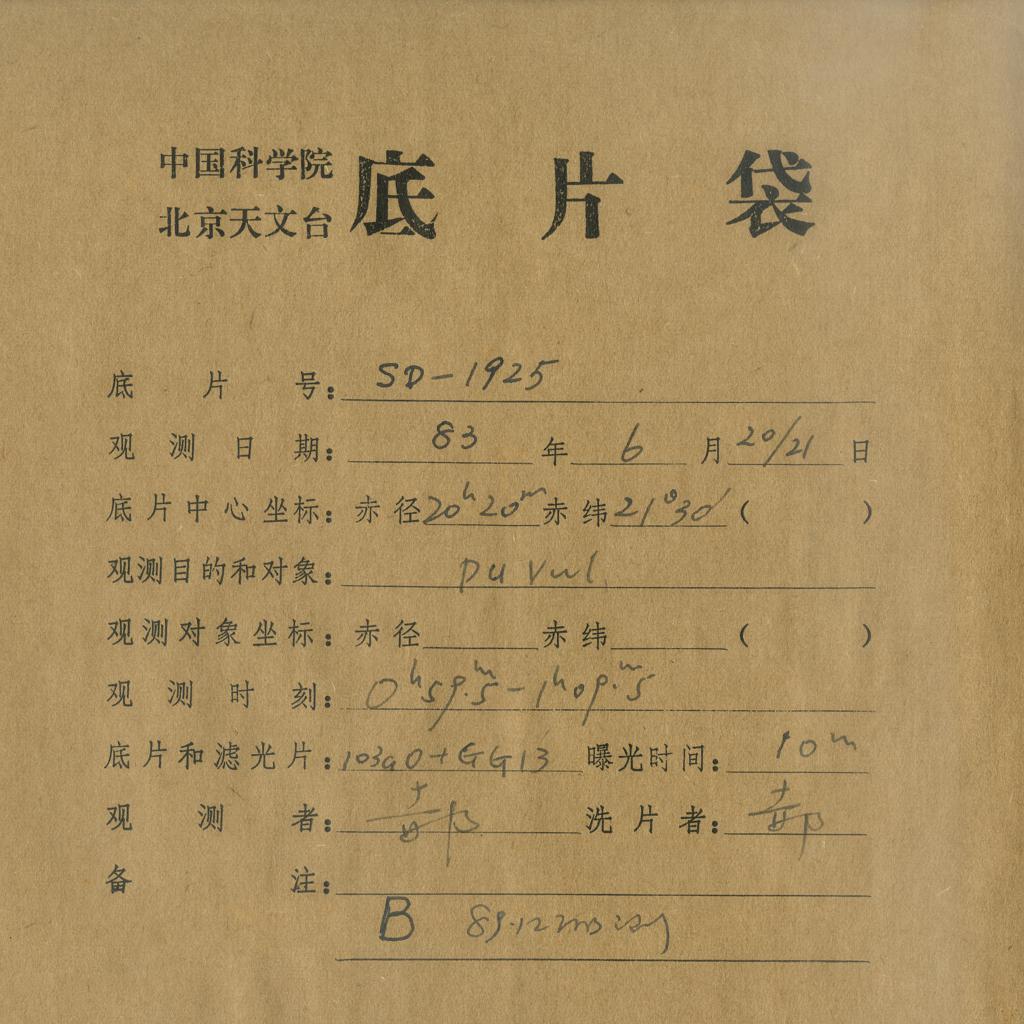 中国科学院
北京天文台
底片袋
底片号: SD-1925
观测日期: 83 年 6 月 20/21 日
底片中心坐标: 赤径 20h20m 赤纬 21°30′ ( )
观测目的和对象: PU Vul
观测对象坐标: 赤径 赤纬 ( )
观测时刻: 0h59m.5-1h09m.5
底片和滤光片: 103aO+GG13 曝光时间: 10m
观测者: 洗片者:
备注:
B 89.12